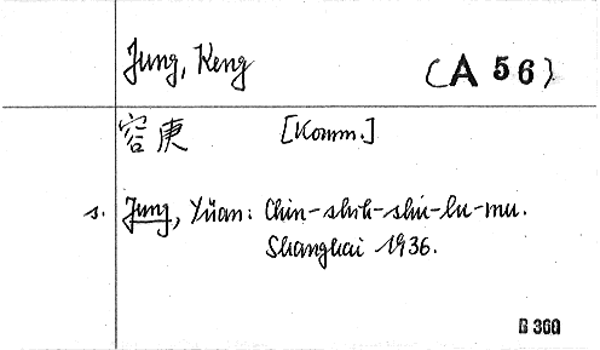 Jung, Keng
(A 56)
容庚 [Komm.]
s. Jung, Yüan: Chin-shih-shu-lu-mu.
Shanghai 1936.
B 360